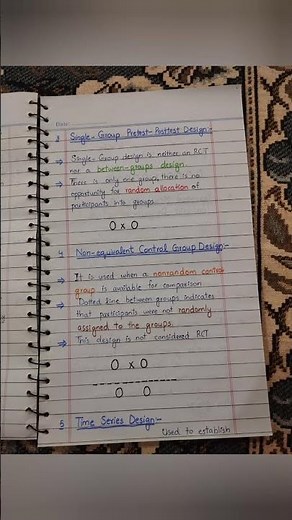 Date:
3 Single-Group Pretest-Posttest Design:-
⇒ Single-Group design is neither an RCT
nor a between-groups design.
⇒ There is only one group, there is no
opportunity for random allocation of
participants into groups
O x O
4 Non-equivalent Control Group Design:-
⇒ It is used when a nonrandom control
group is available for comparison
⇒ Dotted line between groups indicates
that participants were not randomly
assigned to the groups.
⇒ This design is not considered RCT
O x O
O O
5 Time Series Design:-
Used to establish